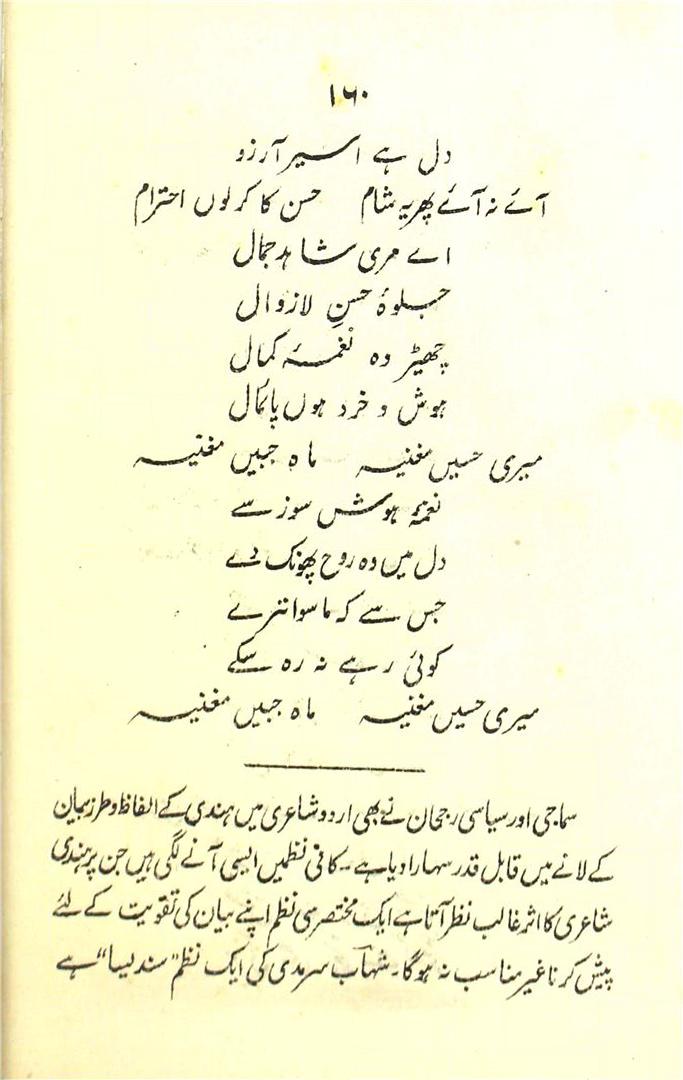 ۱۶۰
دل ہے اسیر آرزو
آئے نہ آئے پھر یہ شام حسن کا کرلوں احترام
اے مری شاہد جمال
جلوۂ حسنِ لازوال
چھیڑ وہ نغمۂ کمال
ہوش و خرد ہوں پائمال
میری حسیں مغنیہ ماہ جبیں مغنیہ
نغمۂ ہوش سوز سے
دل میں وہ روح پھونک دے
جس سے کہ ماسوا ترے
کوئی رہے نہ رہ سکے
میری حسیں مغنیہ ماہ جبیں مغنیہ
سماجی اور سیاسی رجحان نے بھی اردو شاعری میں ہندی کے الفاظ و طرز بیان
کے لانے میں قابل قدر سہارا دیا ہے۔ کافی نظمیں ایسی آنے لگی ہیں جن پر ہندی
شاعری کا اثر غالب نظر آتا ہے ایک مختصر سی نظم اپنے بیان کی تقویت کے لئے
پیش کرنا غیر مناسب نہ ہوگا۔ شہاب سرمدی کی ایک نظم "سندیسا" ہے